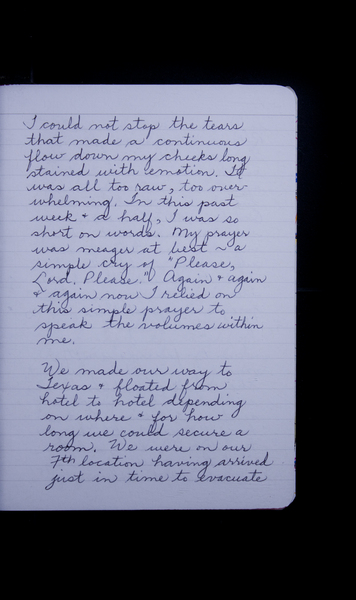 I could not stop the tears
that made a continuous
flow down my cheeks long
stained with emotion. It
was all too raw, too over-
whelming. In this past
week & a half, I was so
short on words. My prayer
was meager at best ~ a
simple cry of "Please,
Lord. Please." Again & again
& again now I relied on
this simple prayer to
speak the volumes within
me.
We made our way to
Texas & floated from
hotel to hotel depending
on where & for how
long we could secure a
room. We were on our
7th location having arrived
just in time to evacuate